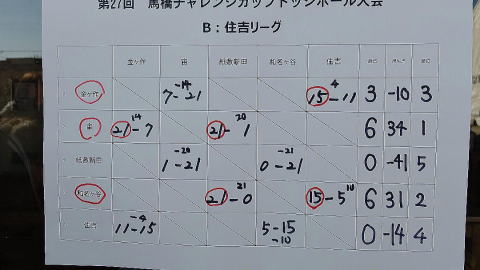 第27回 馬橋チャレンジカップドッジボール大会
B：住吉リーグ
金ケ作 宙 和名ケ谷 住吉
金ケ作 -14 7-21 4 15-11 3 -10 3
宙 14 21-7 20 21-1 6 34 1
-20 1-21 -21 0-21 0 -41 5
和名ケ谷 21 21-0 10 15-5 6 31 2
住吉 -4 11-15 5-15 -10 0 -14 4